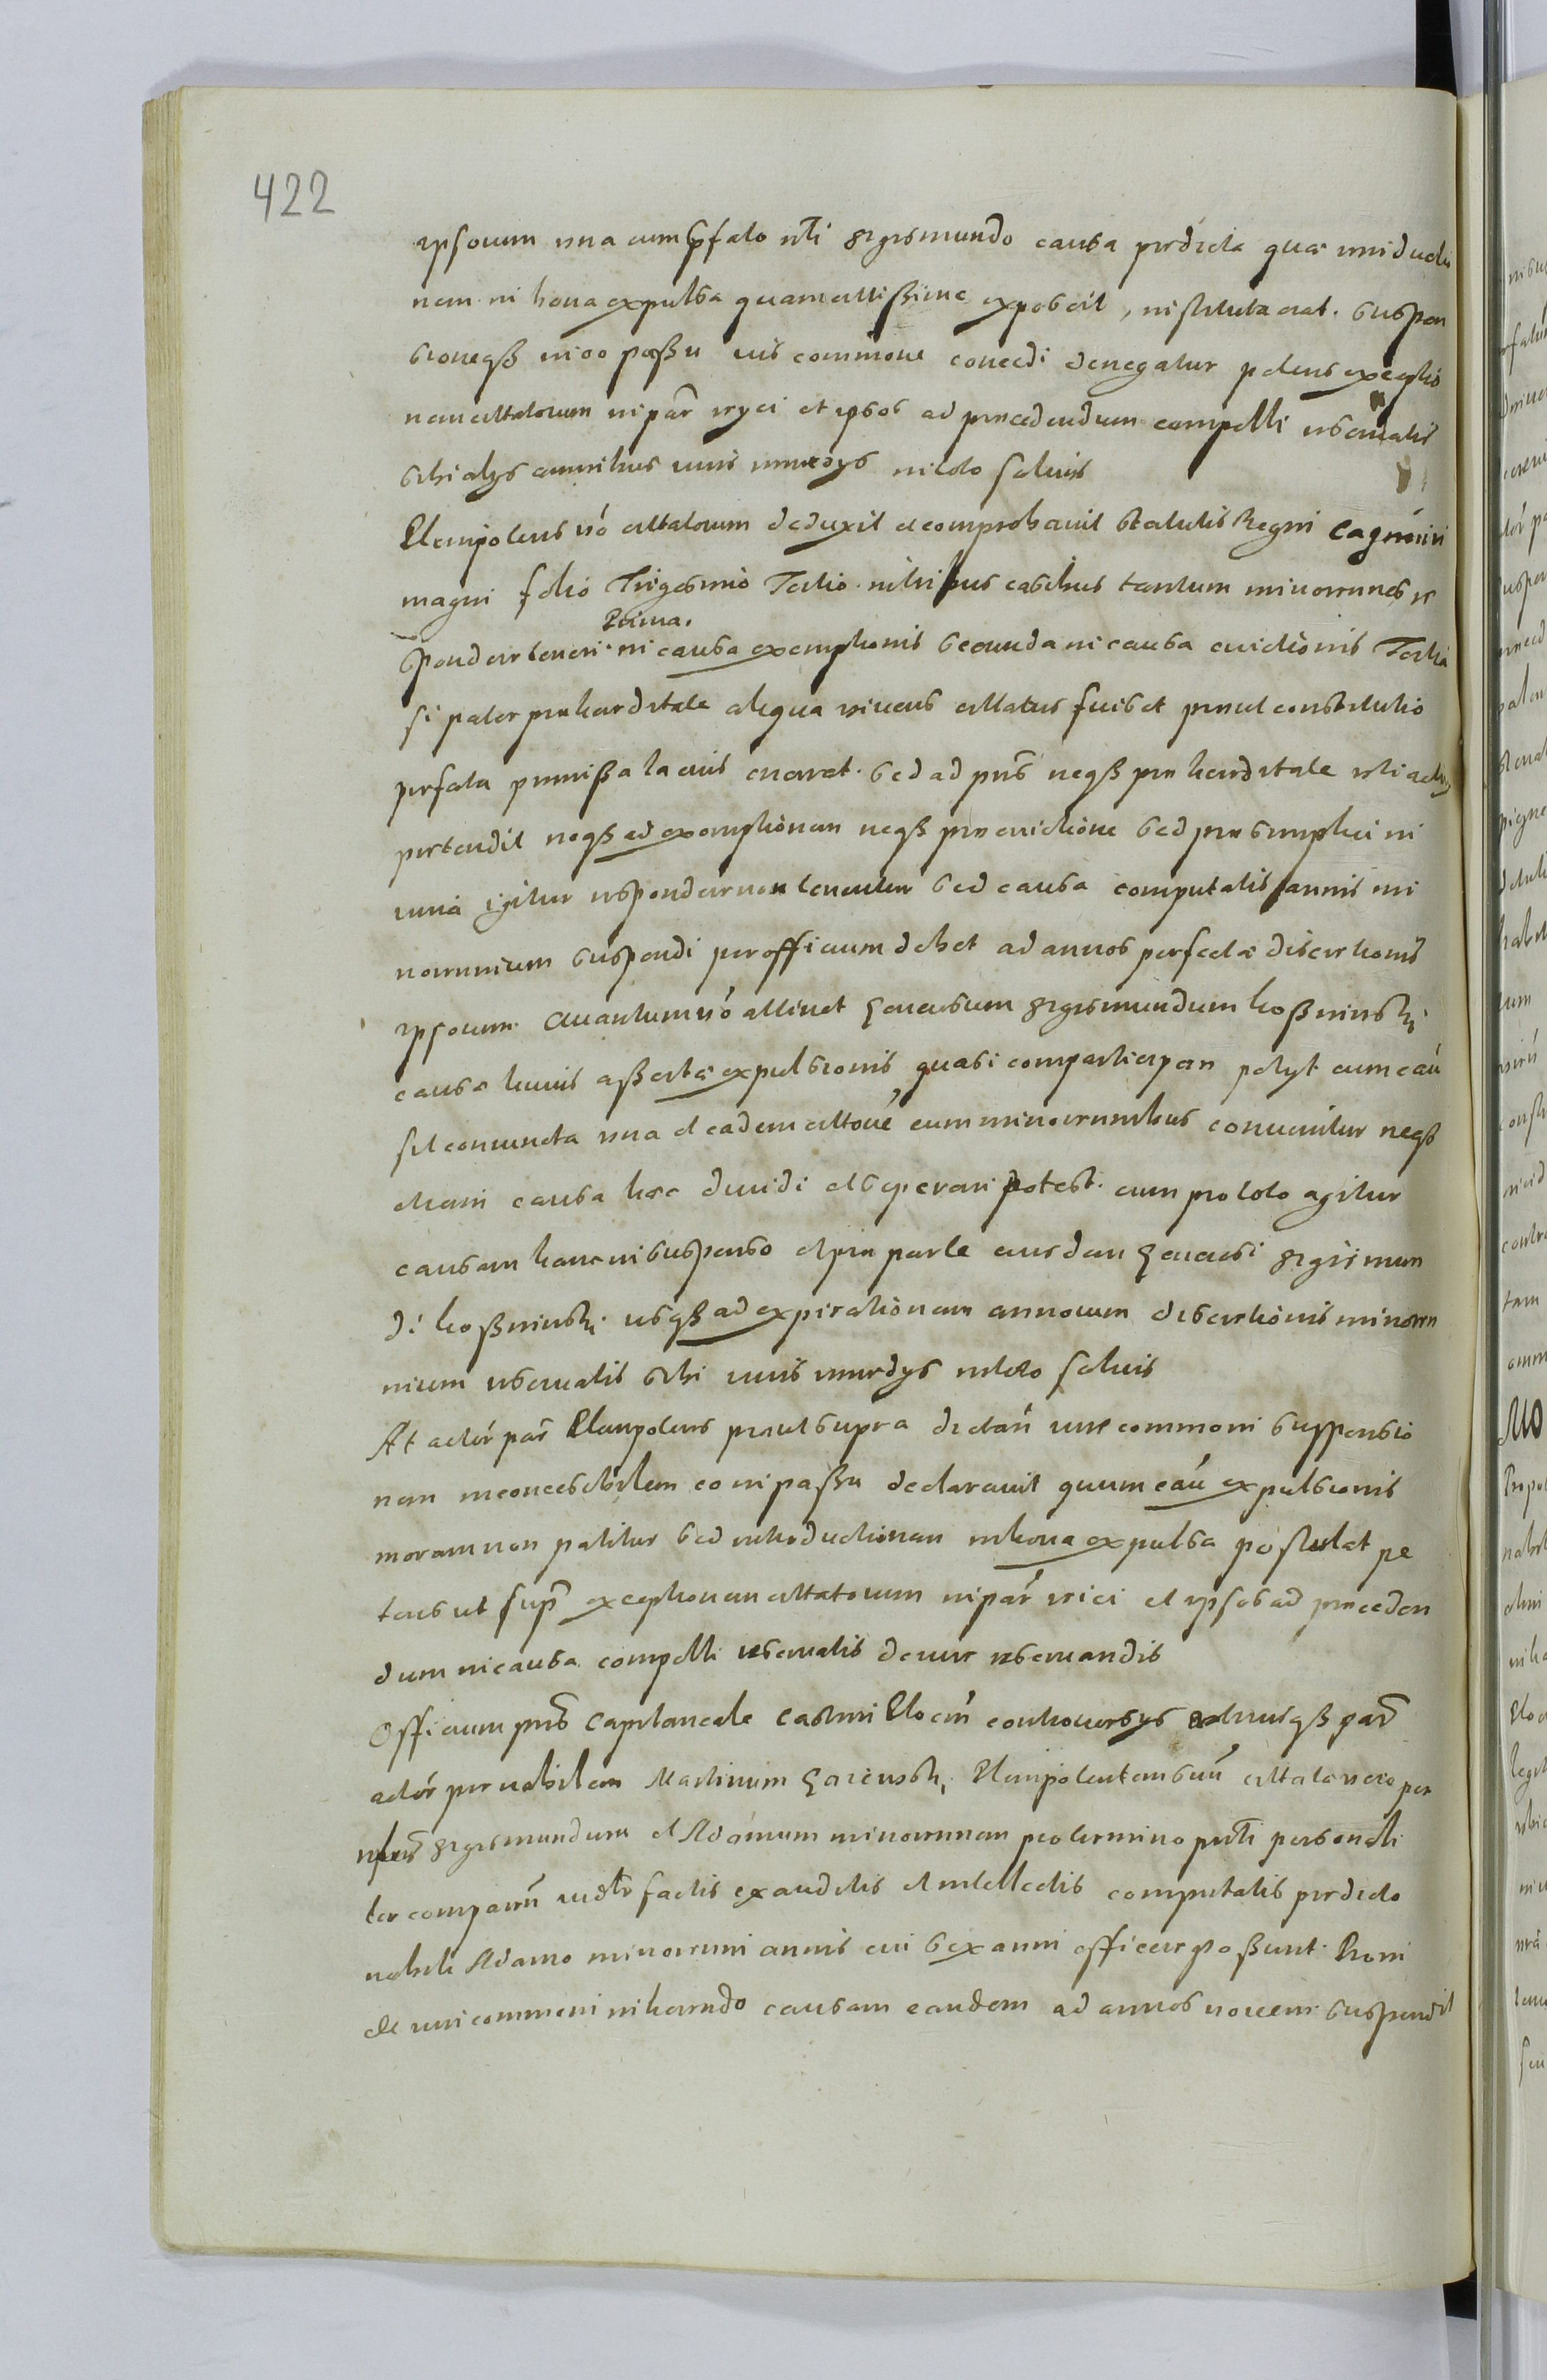 422
ipsorum una cum p̃fato nl̃i Sigismundo causa prædicta quæ introductio
nem in bona expulsa quam citissime exposcit, instituta erat. Suspen
sioneqß in eo passu iuris commone concedi denegatur petens exceptio
nem citatorum in par̃ reyci et ipsos ad procedendum compelli reservatis
sibi alys omnibus iuris remedys in toto salvis
Plenipotens v́o citatorum deduxit et comprobavit Statutis Regni Cazimiri
magni folio Trigesimo Tertio in tribus casibus tantum minorennes re
Prima.
spondere teneri in causa exemptionis secunda in causa evictionis Tertia
si pater pro hæreditate aliqua vivens citatus fuisset prout constitutio
præfata præmissa latius enarrat. Sed ad pn̄s neqß pro hæreditate uti actor
prætendit neqß ad exemptionem neqß pro evictione sed pro simplici in
iuria igitur respondere non tenentur sed causa computatis annis mi
norennium suspendi per officium debet ad annos perfectæ discretionis
ipsorum. Quantum v́o attinet Generosum Sigismundum Koßminski
causa huius assertæ expulsionis quasi comparticipem pelyt cum caú
sit coniuncta una et eadem cittoné cum minorennibus convenitur neqß
etiam causa hæc dividi et seperari potest. cum pro toto agitur
causam hanc in suspenso et pro parte eiusdem Generosi Sigismun
di Koßminski usqß ad expirationem annorum discretionis minoren
nium reservatis sibi iuris remedys in toto salvis
At actór par̃ Plenipotens prout supra dictam̃ iure commoni suspensio
nem inconcessibilem eo in passu declaravit quum caú expulsionis
moram non patitur sed introductionem in bona expulsa postulat pe
tens ut sup̃ exceptionem citatorum in par̃ reici et ipsos ad proceden
dum in causa compelli reservatis de iure reservandis
Officium pn̄s Capitaneale Castren̄ Plocen̄ controversys utriusqß par̃
actór per nobilem Martinum Plenipotentem suum̃ citata vero per
Sigismundum et Adamum minorennem pro termino pn̄ti personali
ter comparen̄ factis exauditis et intellectis computatis prædicto
nobili Adamo minorenni annis cui sex anni officere possunt. Proin
de iuri commoni inhærendo causam eandem ad annos novem suspendit